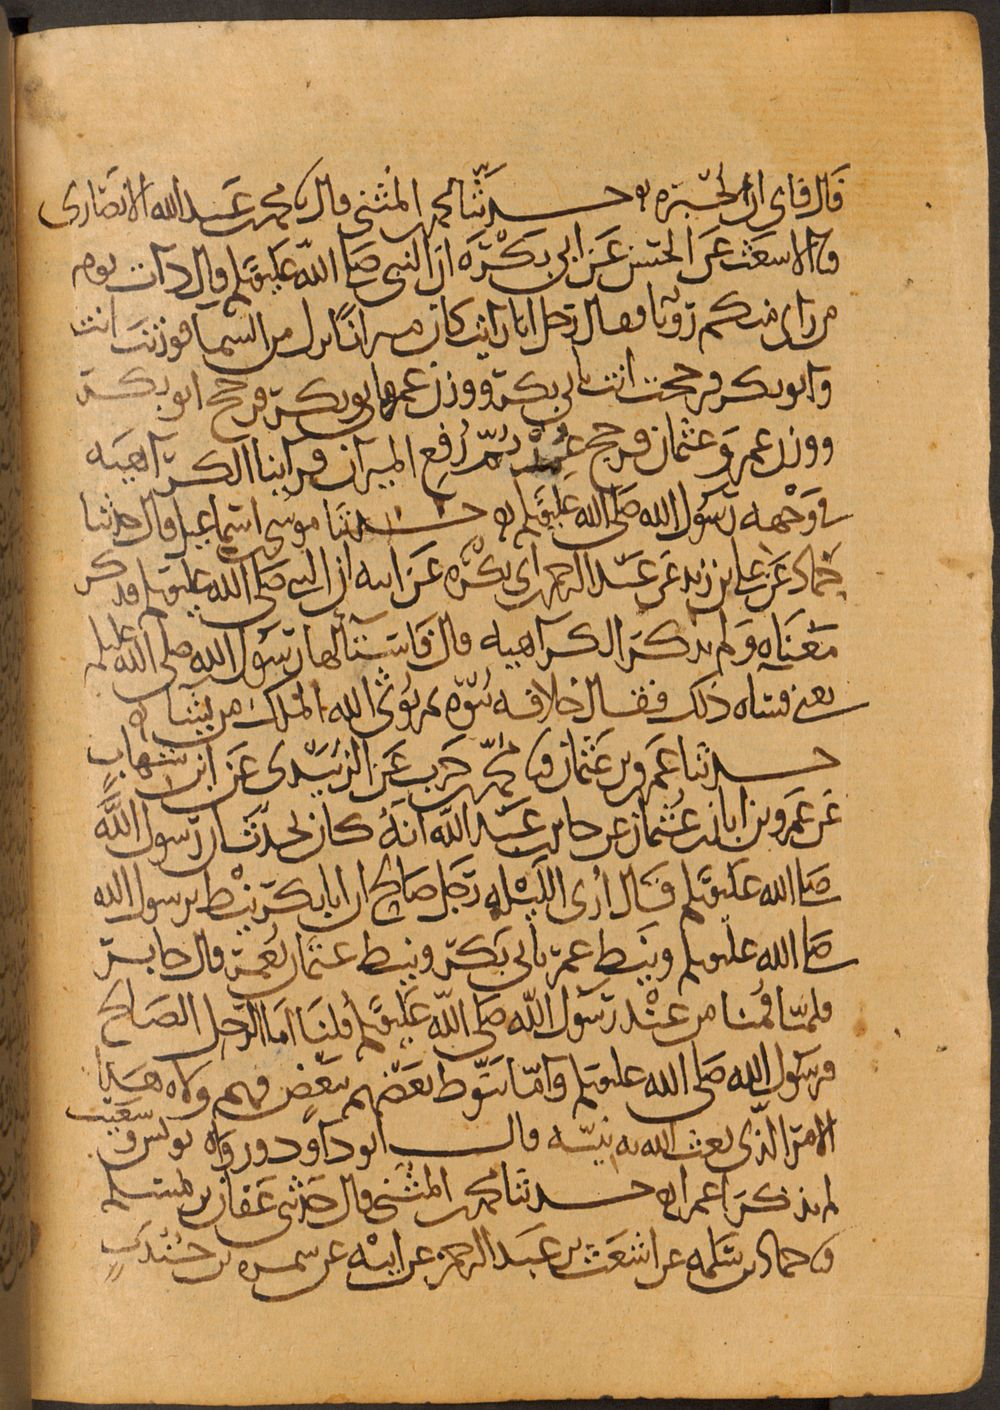 قال فابى ان يخبره حدثنا محمد بن المثنى قال نا محمد بن عبد الله الانصارى
نا الاشعث عن الحسن عن ابى بكرة ان النبى صلى الله عليه وسلم قال ذات يوم
من راى منكم رؤيا فقال رجل انا رايت كان ميزانا نزل من السما فوزنت انت
وابو بكر فرجحت انت بابى بكر ووزن عمر وابو بكر فرجح ابو بكر
ووزن عمر وعثمان فرجح عمر ثم رفع الميزان فراينا الكراهيه
فى وجه رسول الله صلى الله عليه وسلم حدثنا موسى بن اسماعيل قال حدثنا
حماد عن على بن زيد عن عبد الرحمن بن ابى بكره عن ابيه ان النبى صلى الله عليه وسلم فذكر
معناه ولم يذكر الكراهيه قال فاستآ لها رسول الله صلى الله عليه وسلم
يعنى فساه ذلك فقال خلافه نبوه ثم يوتى الله الملك من يشا
حدثنا عمرو بن عثمان نا محمد بن حرب عن الزبيدى عن ابن شهاب
عن عمرو بن ابان بن عثمان عن جابر بن عبد الله انه كان يحدث ان رسول الله
صلى الله عليه وسلم قال ارى الليله رجل صالح ان ابا بكر نيط برسول الله
صلى الله عليه وسلم ونيط عمر بابى بكر ونيط عثمان بعمر قال جابر
فلما قمنا من عند رسول الله صلى الله عليه وسلم قلنا اما الرجل الصالح
فرسول الله صلى الله عليه وسلم واما تنوط بعضهم ببعض فهم ولاه هذا
الامر الذى بعث الله به نبيه قال ابو داود ورواه يونس وشعيب
لم يذكرا عمرا حدثنا محمد بن المثنى قال حدثنى عفان بن مسلم
نا حماد بن سلمه عن اشعث بن عبد الرحمن عن ابيه عن سمره بن جندب